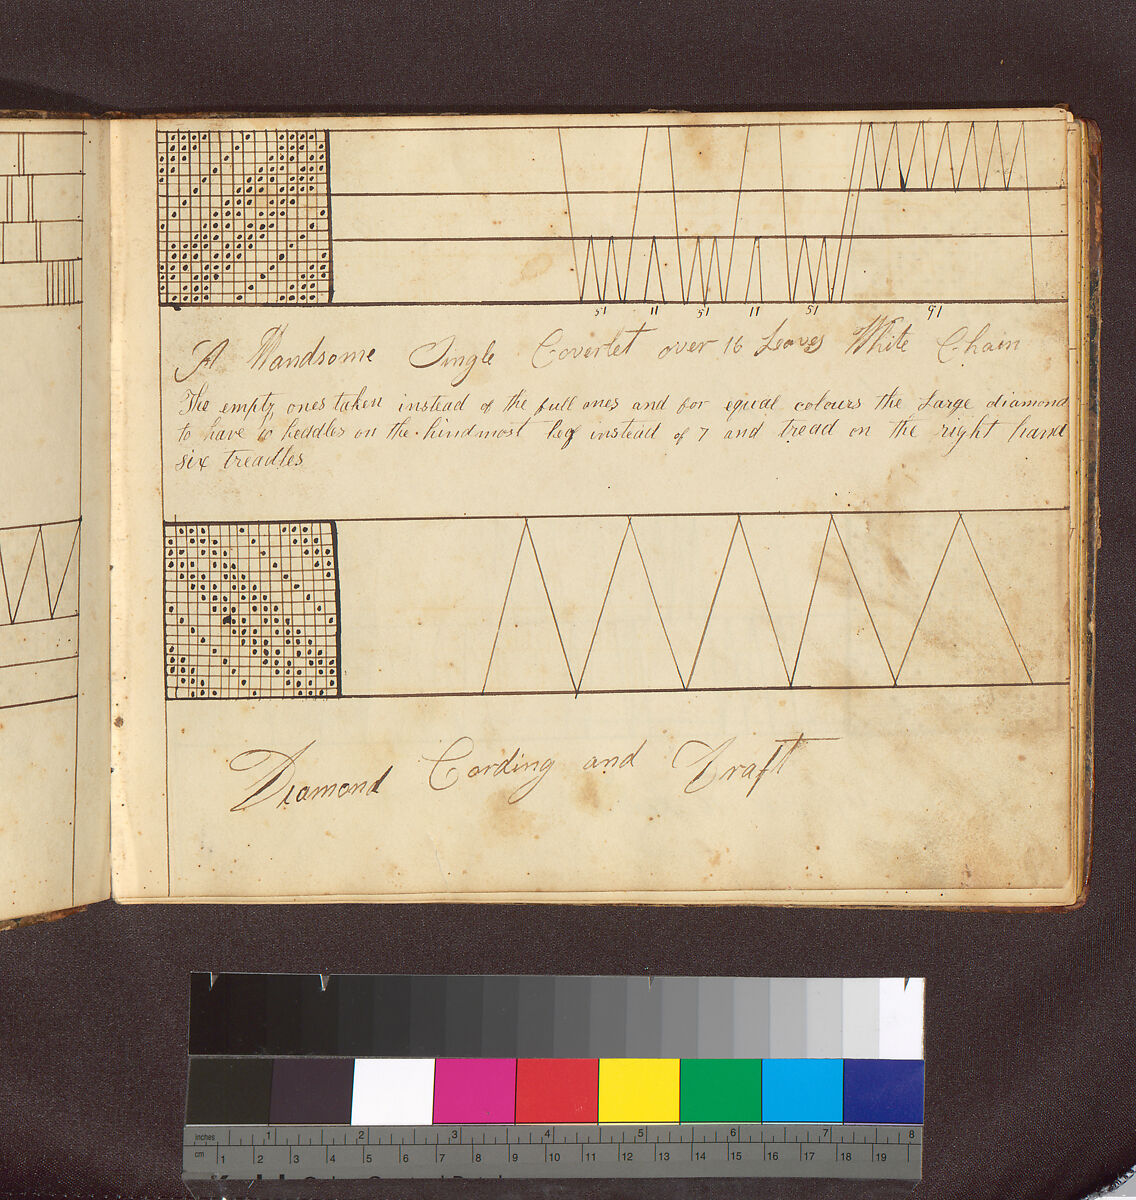 51 11 51 11 51 91
A Handsome Single Coverlet over 16 Leaves White Chain
The empty ones taken instead of the full ones and for equal colours the Large diamond
to have 10 heddles on the hindmost leaf instead of 7 and tread on the right hand
six treadles
Diamond Cording and Draft
inches 1 2 3 4 5 6 7 8
cm 1 2 3 4 5 6 7 8 9 10 11 12 13 14 15 16 17 18 19